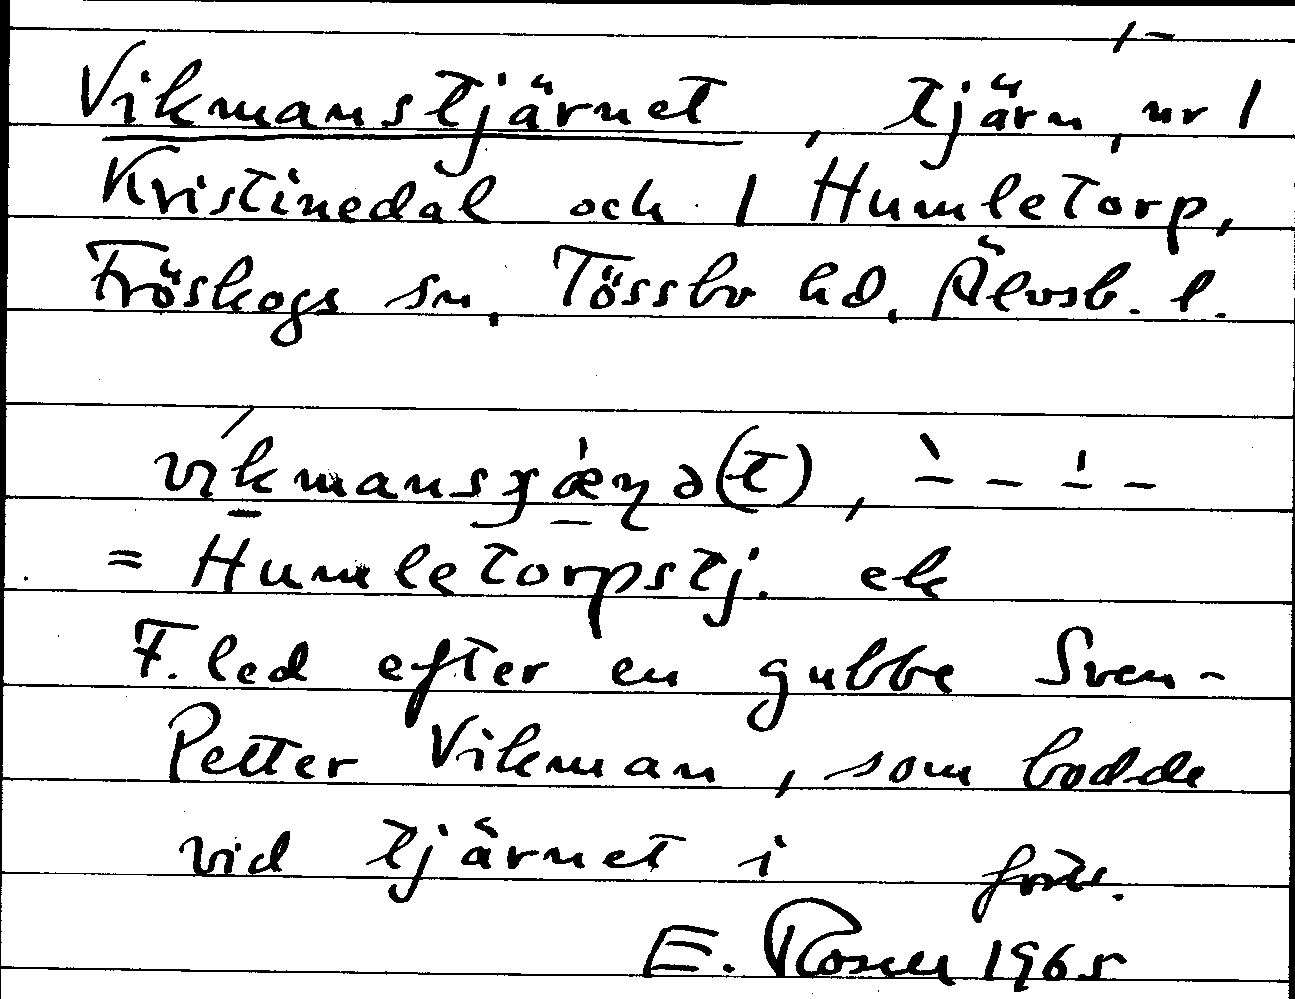 1-
Vikmanstjärnet, tjärn, nr 1
Kristinedal och 1 Humletorp,
Fröskogs sn, Tössbo hd, Älvsb. l.
víkmansɟæ̀ɳə(t), `- - ̍- -
= Humletorpstj. ek
F. led efter en gubbe Sven-
Petter Vikman, som bodde
vid tjärnet i forts.
E. Rosell 1965